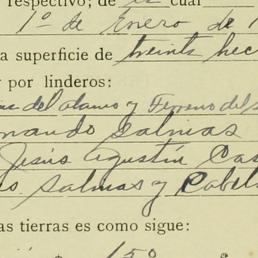 respectivo; de es cual
1º de Enero de 1
a superficie de treinta hec
por linderos:
del alamo y Terreno del s
nando Salinas
Jesús Agustín Cas
Salinas y Cabel
as tierras es como sigue:
15º